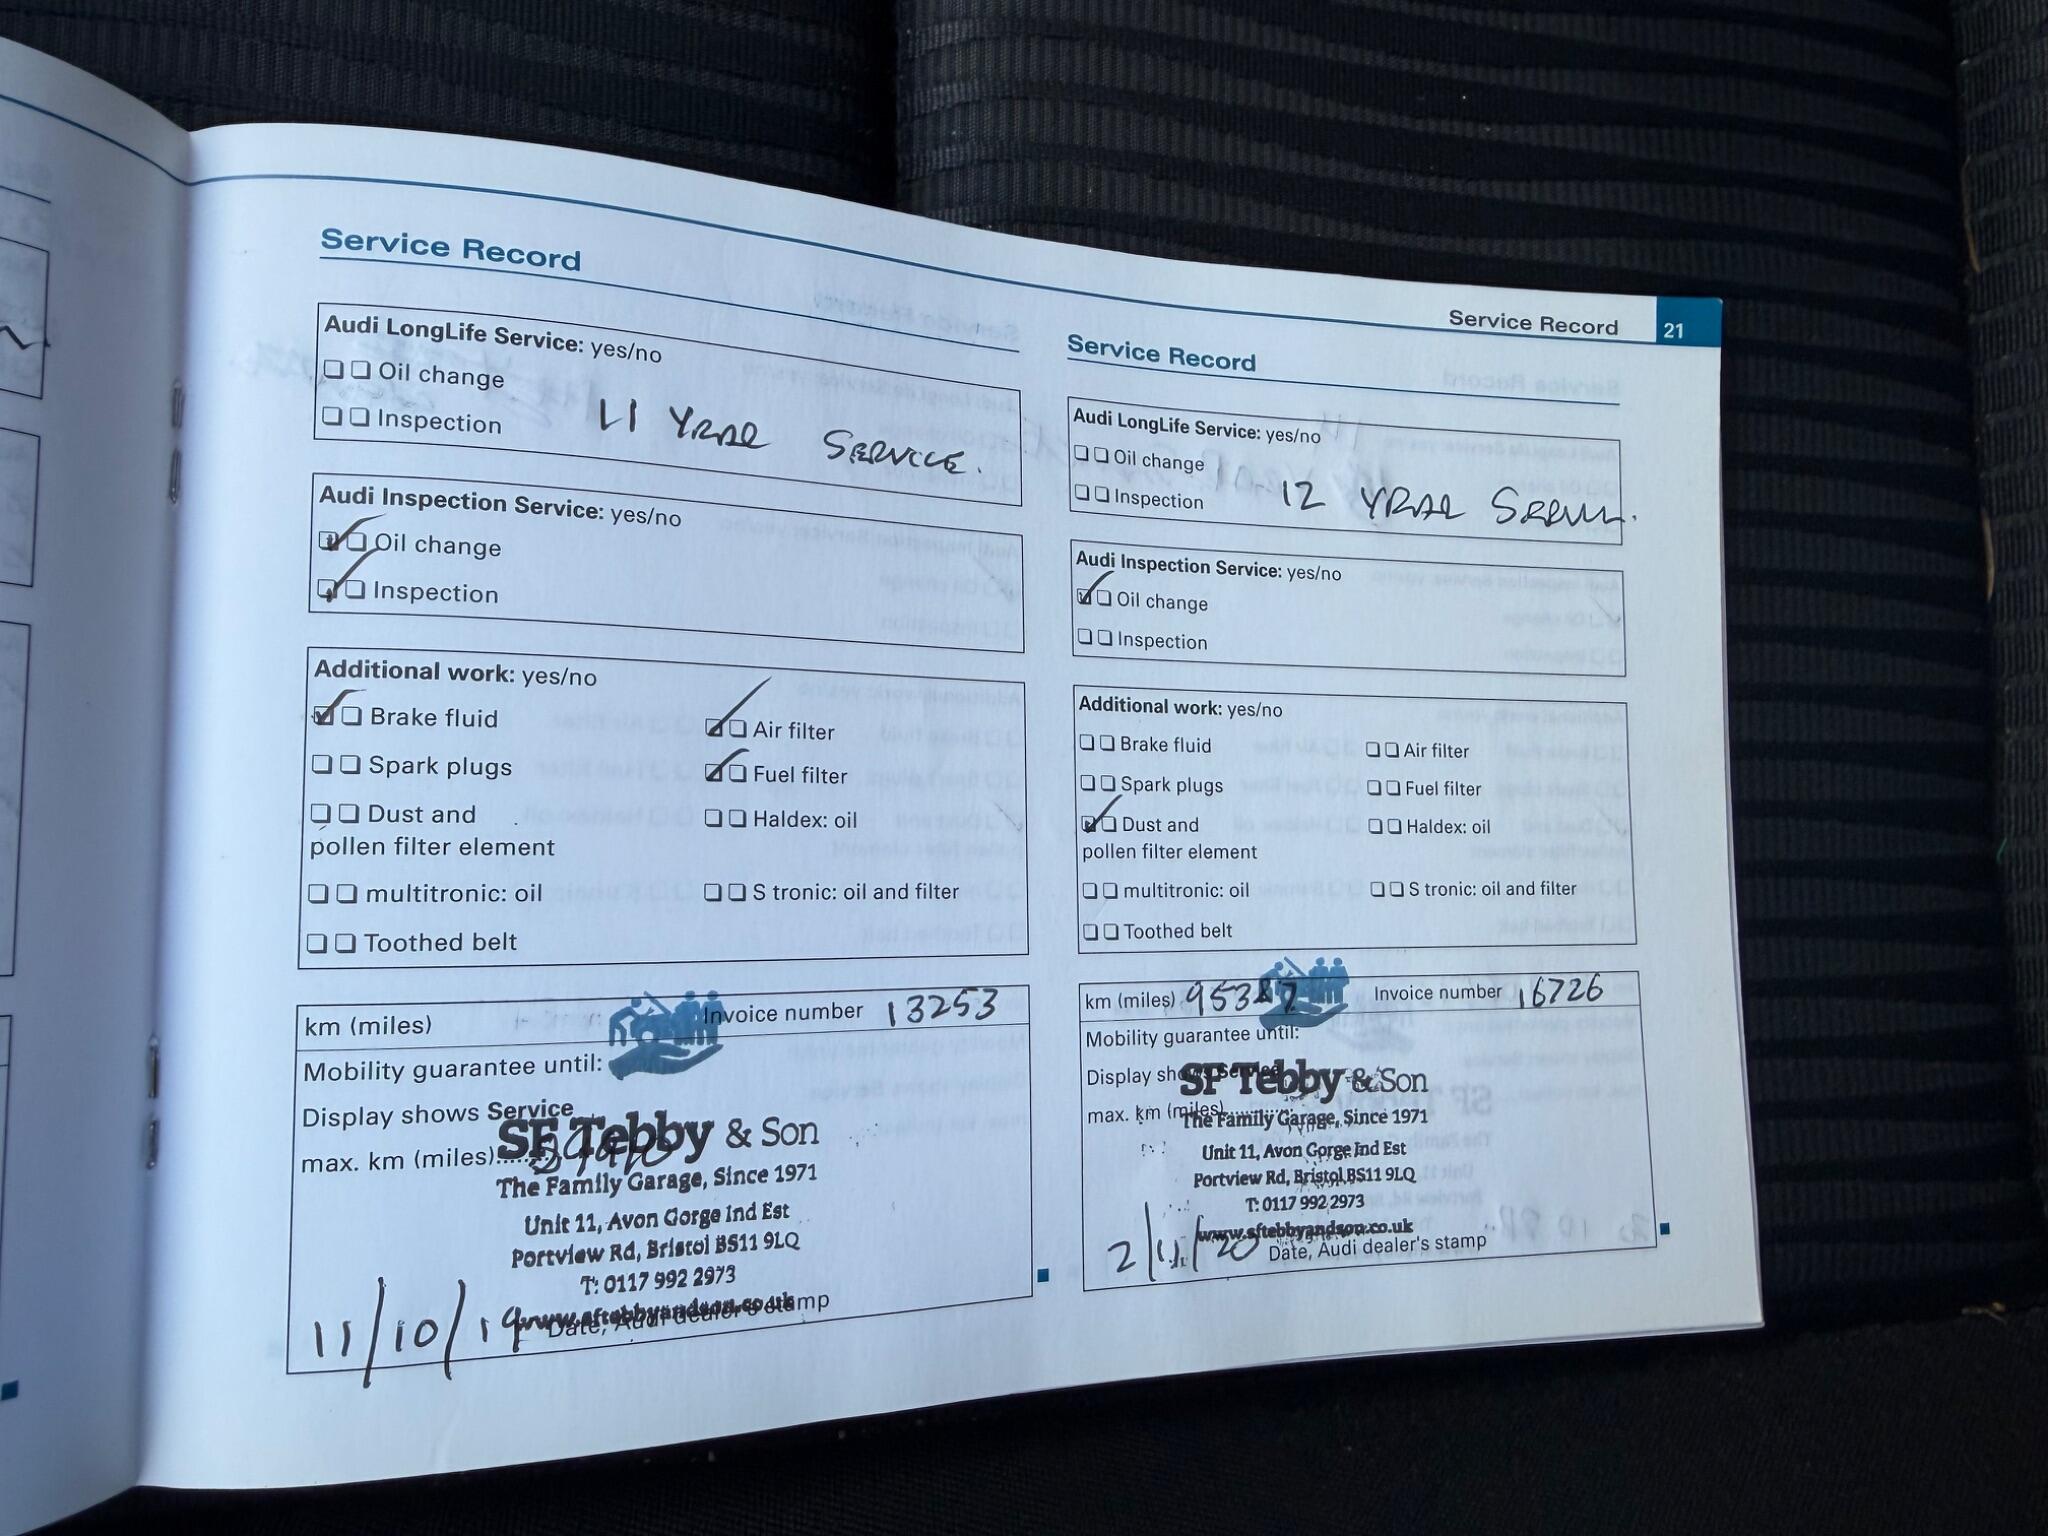 Service Record
Audi LongLife Service: yes/no
Oil change
Inspection
11 YEAR SERVICE.
Audi Inspection Service: yes/no
Oil change
Inspection
Additional work: yes/no
Brake fluid
Air filter
Spark plugs
Fuel filter
Dust and
pollen filter element
Haldex: oil
multitronic: oil
S tronic: oil and filter
Toothed belt
km (miles)
Invoice number 13253
Mobility guarantee until:
Display shows Service
max. km (miles)
SF Tebby & Son
The Family Garage, Since 1971
Unit 11, Avon Gorge Ind Est
Portview Rd, Bristol BS11 9LQ
T: 0117 992 2973
www.sftebbyandson.co.uk
Date, Audi dealer's stamp
11/10/19
Service Record 21
Service Record
Audi LongLife Service: yes/no
Oil change
Inspection
12 YEAR SERVICE.
Audi Inspection Service: yes/no
Oil change
Inspection
Additional work: yes/no
Brake fluid
Air filter
Spark plugs
Fuel filter
Dust and
pollen filter element
Haldex: oil
multitronic: oil
S tronic: oil and filter
Toothed belt
km (miles)
Invoice number 16726
Mobility guarantee until:
Display shows Service
max. km (miles)
SF Tebby & Son
The Family Garage, Since 1971
Unit 11, Avon Gorge Ind Est
Portview Rd, Bristol BS11 9LQ
T: 0117 992 2973
www.sftebbyandson.co.uk
Date, Audi dealer's stamp
2/11/20